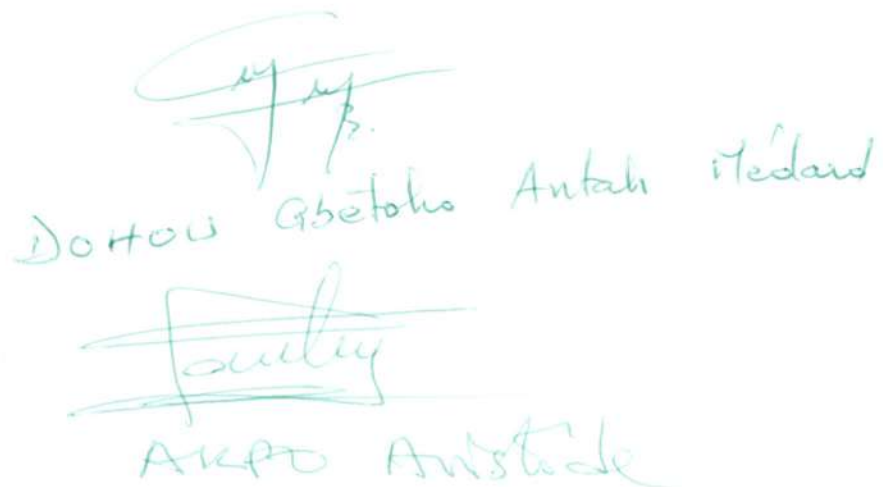 DOHOU Gbètoho Antah Médard
AKPO Aristide